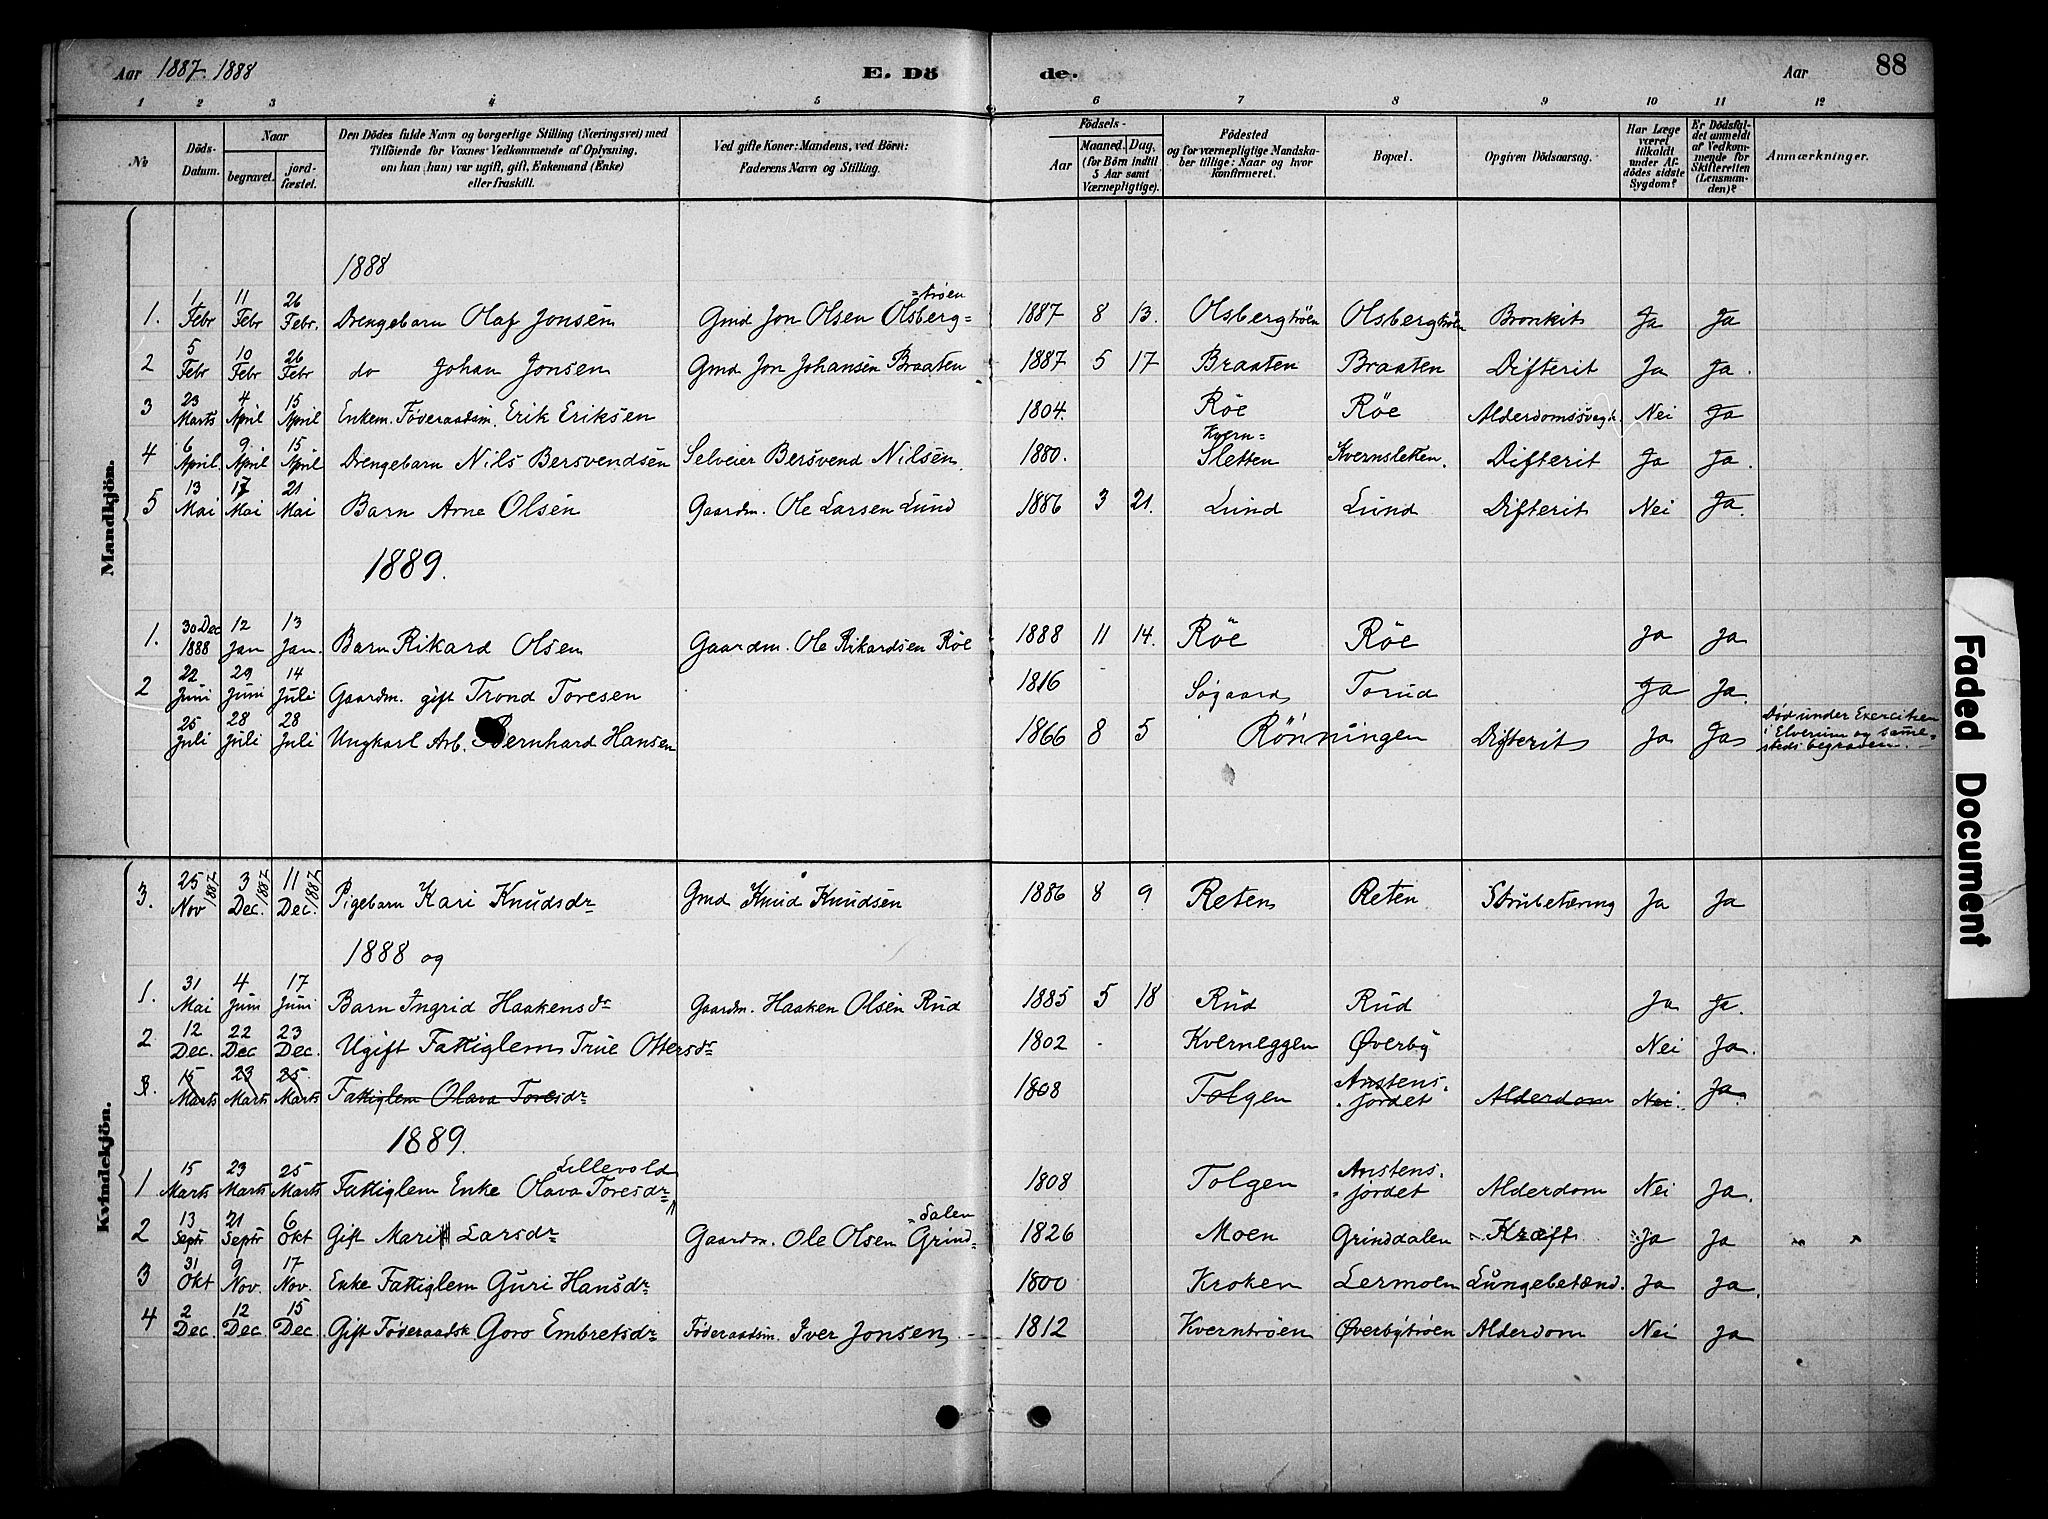 Aar 1887. 1888 E. Dö de. Aar 88
1 2 3 4 5 6 7 8 9 10 11 12
No
Döds-Datum.
Naar
begravet.
jord-fæstet.
Den Dödes fulde Navn og borgerlige Stilling (Næringsvei) med
Tilföiende for Voxnes Vedkommende af Oplysning,
om han (hun) var ugift, gift, Enkemand (Enke)
eller fraskilt.
Ved gifte Koner: Mandens, ved Börn:
Faderens Navn og Stilling.
Födsels-
Aar
Maaned. Dag.
(for Börn indtil
5 Aar samt
Værnepligtige).
Födested
og for værnepligtige Mandska-
ber tillige: Naar og hvor
konfirmeret.
Bopæl.
Opgiven Dödsaarsag.
Har Læge
været
tilkaldt
under Af-
dödes sidste
Sygdom?
Er Dödsfal-
det anmeldt
af Vedkom-
mende for
Skifteretten
(Lensman-
den)?
Anmærkninger.
Mandkjön.
1888
1. 1 Febr 11 Febr 26 Febr. Drengebarn Olaf Jonsen Gmd Jon Olsen Olsberg= =trøen 1887 8 13. Olsbergtröen Olsbergtröen Bronkit Ja Ja
2 5 Febr 10 Febr 26 Febr do Johan Jonsen Gmd Jon Johansen Braaten 1887 5 17 Braaten Braaten Difterit Ja Ja.
3 23 Marts 4 April 15 April Enkem. Føderaadsm. Erik Eriksen 1804. Röe Röe Alderdomssvagh. Nei Ja
4 6 April. 9 April 15 April Drengebarn Nils Bersvendsen Selveier Bersvend Nilsen. 1880. Kvern= Sletten Kvernsletten. Difterit Ja Ja.
5 13 Mai 17 Mai 21 Mai Barn Arne Olsen Gaardm. Ole Larsen Lund 1886 3 21. Lund Lund Difterit Nei Ja.
1889.
1. 30 Dec 1888 12 Jan 13 Jan. Barn Rikard Olsen Gaardm. Ole Rikardsen Röe 1888 11 14. Röe Röe Ja Ja
2 22 Juni 29 Juni 14 Juli Gaardm. gift Trond Toresen 1816 - Søgaard Torud Ja Ja.
25 Juli 28 Juli 28 Juli Ungkarl Arb. Bernhard Hansen 1866 8 5 Rønningen Difterit Ja Ja Död under Exercitien
i Elverum og samme-
steds begraven.
Kvindekjön.
3. 25 Nov 1887 3 Dec. 1887 11 Dec. 1887 Pigebarn Kari Knudsdr Gmd Knud Knudsen 1886 8 9 Reten Reten Strubetæring Ja Ja
1888 og
1. 31 Mai 4 Juni 17 Juni Barn Ingrid Haakensdr Gaardm. Haaken Olsen Rud 1885 5 18 Rud Rud Ja Ja.
2 12 Dec. 22 Dec 23 Dec. Ugift Fattiglem True Ottersdr 1802 - Kverneggen Øverby Nei Ja.
3. 15 Marts 23 Marts 25 Marts Fattiglem Olava Toresdr 1808 Tolgen Anstens. jordet Alderdom Nei. Ja.
1889.
1 15 Marts 23 Marts 25 Marts Fattiglem Enke Olava Toresdr Lillevold 1808 Tolgen Anstens. jordet Alderdom Nei Ja.
2 13 Septr 21 Septr 6 Okt Gift Marit Larsdr Gaardm. Ole Olsen Grind= =dalen 1826 Moen Grinddalen Kræft Ja Ja
3 31 Okt 9 Nov. 17 Nov. Enke Fattiglem Guri Hansdr 1800 Kroken Lermoen Lungebetænd. Ja Ja.
4 2 Dec. 12 Dec 15 Dec. Gift Föderaadsk Goro Embretsdr Föderaadsm. Iver Jonsen 1812 Kverntrøen Øverbytrøen Alderdom Nei Ja
Faded Document